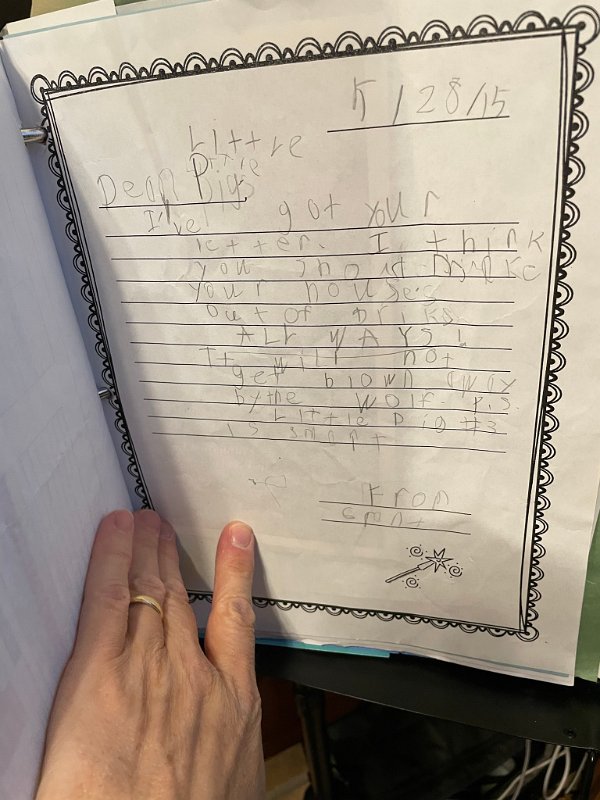 /28/15
Little
Dear Pigs
I've got your
letter. I think
you should make
your houses
out of bricks
ALL WAYS!
It will not
get blown away
by the wolf. P.S.
Little pig #3
is smart
From